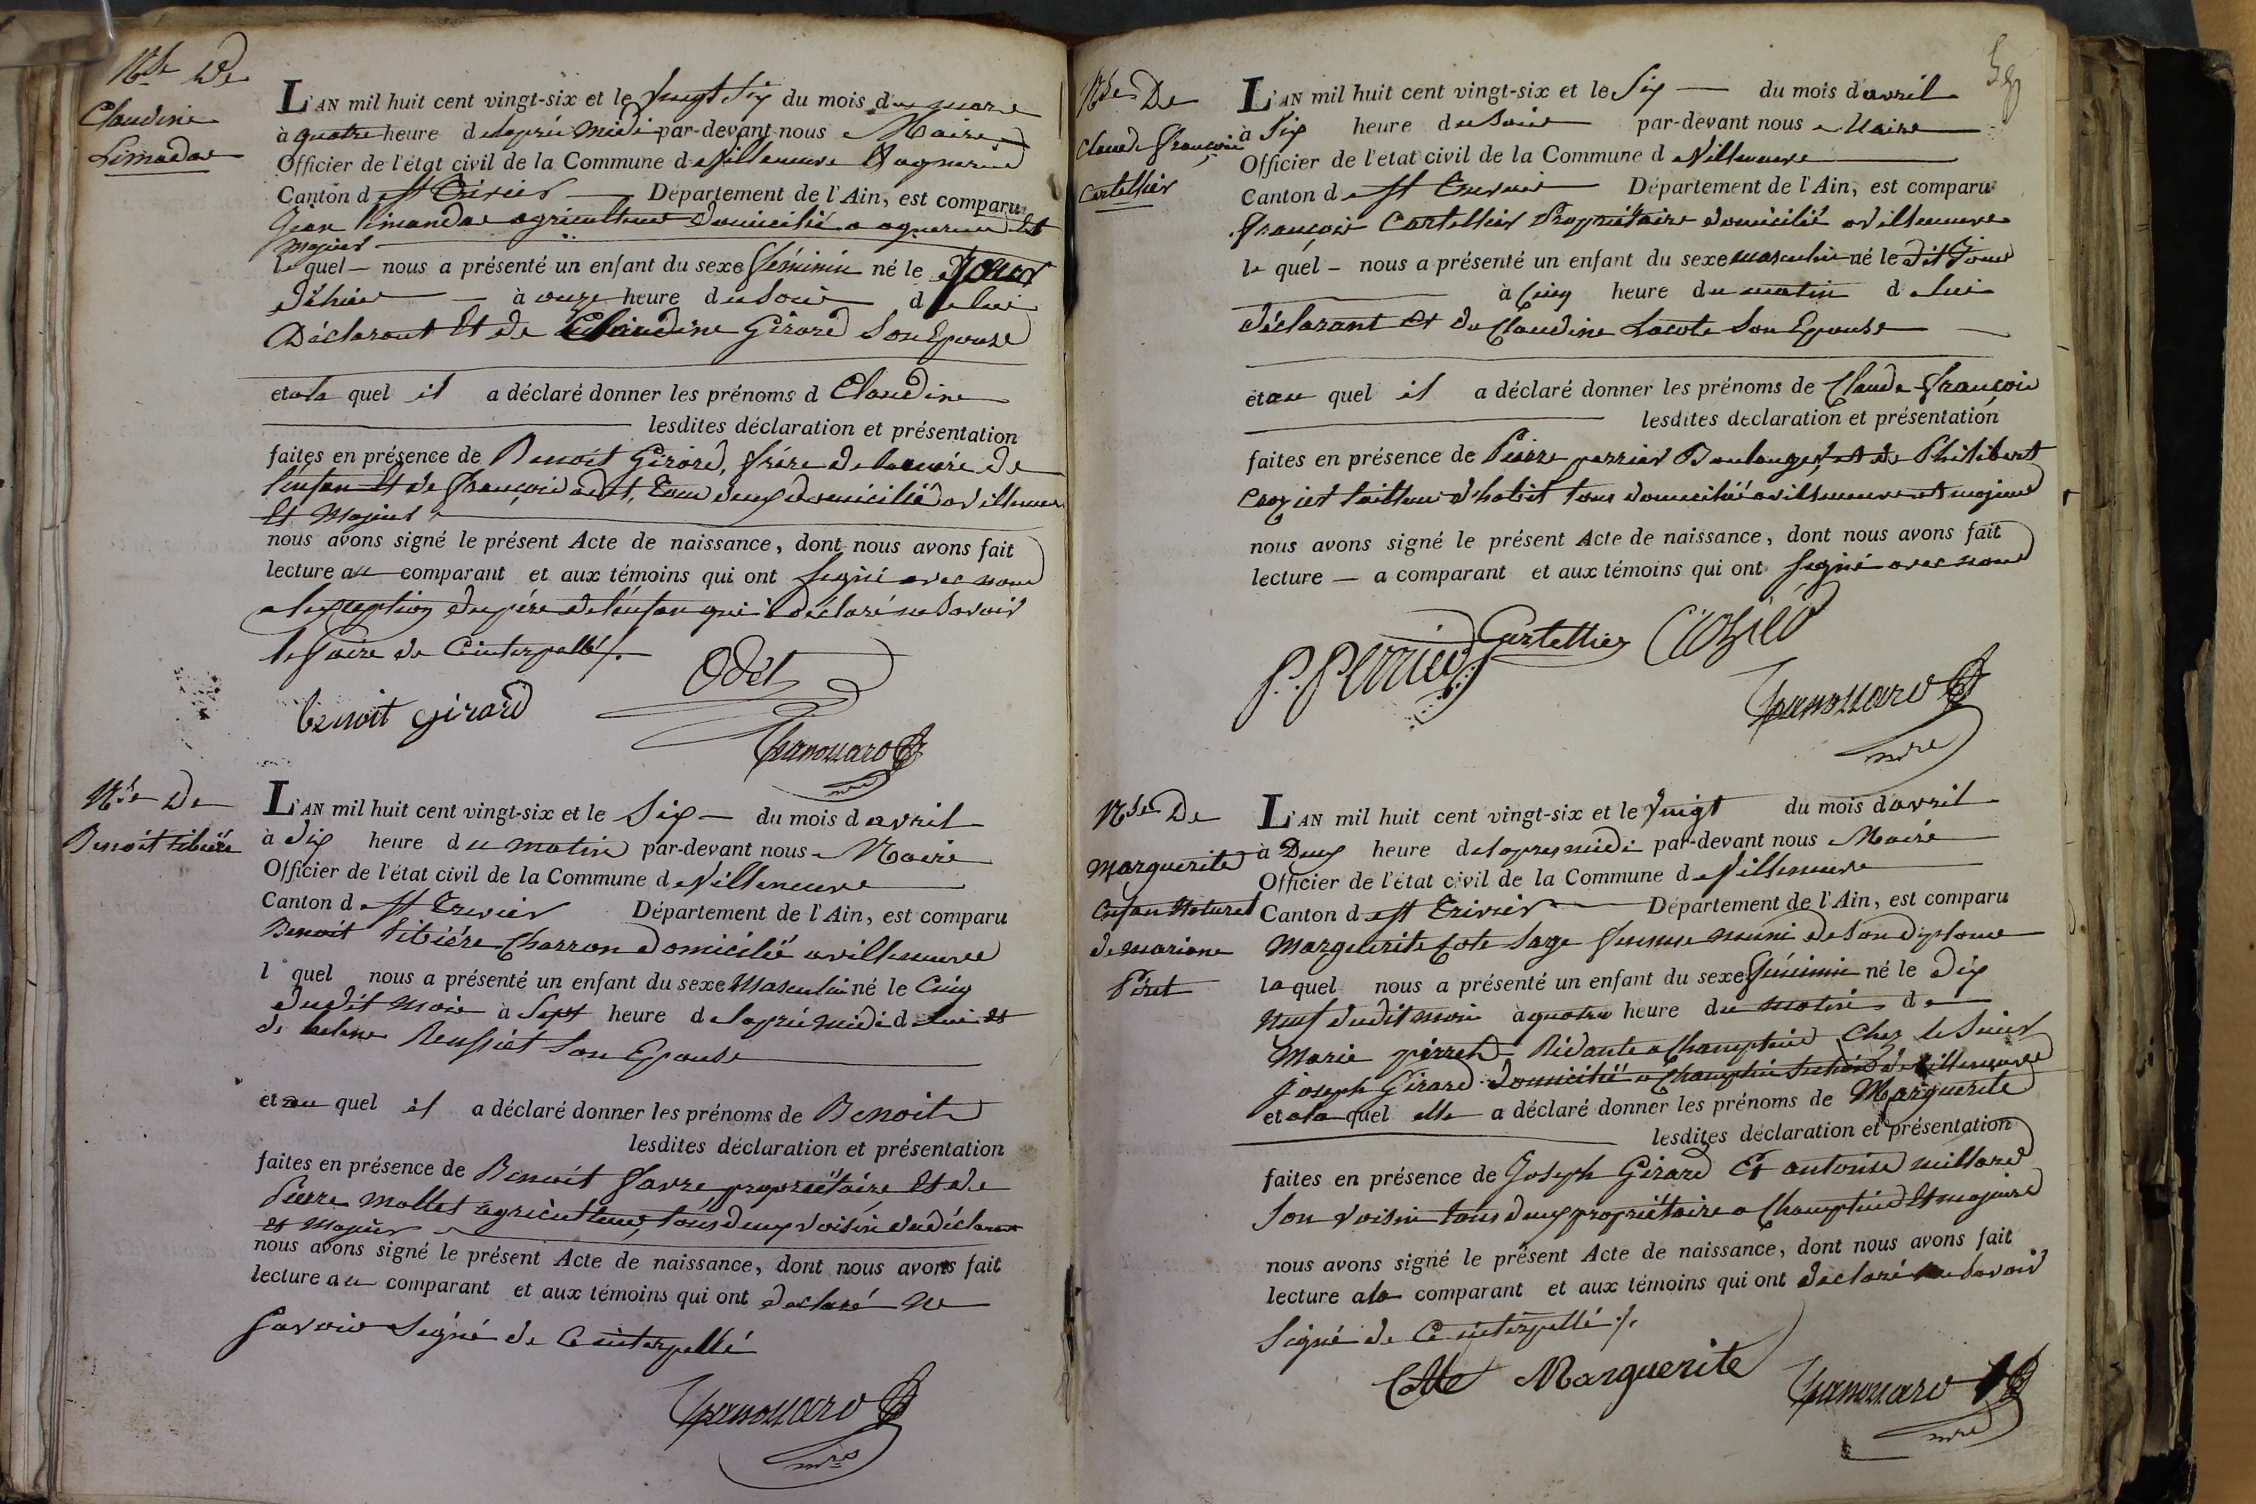 Nce De
Claudine
Limandas
L'AN mil huit cent vingt-six et le vingt Six du mois de mars
à quatre heure de laprés Midi par-devant nous Maire
Officier de l'état civil de la Commune de Villeneuve & agnereins
Canton de St Trivier Département de l'Ain, est comparu
Jean Limandas agriculteur Domicilié a agnereins Et
Majeur
le quel nous a présenté un enfant du sexe féminin né le jour
d'hier à onze heure du Soir de lui
Déclarant Et de Claudine Girard Son Epouse
et a la quel il a déclaré donner les prénoms d Claudine
lesdites déclaration et présentation
faites en présence de Benoit Girard, frére de la mére de
l'enfan Et de françois odet, tous deux domicilié a villeneuve
Et Majeur
nous avons signé le présent Acte de naissance, dont nous avons fait
lecture au comparant et aux témoins qui ont Signé avec nous
a lexception du pére de l'enfan qui a déclaré ne Savoir
le faire de Ce interpellé /.
Odet
benoit girard
mre
Nce De
Benoit tibiére
L'AN mil huit cent vingt-six et le Six du mois d avril
à Dix heure du matin par-devant nous Maire
Officier de l'état civil de la Commune de Villeneuve
Canton de St Trivier Département de l'Ain, est comparu
Benoit tibiére Charron Domicilié a villeneuve
l quel nous a présenté un enfant du sexe Masculin né le Cinq
dudit mois à Sept heure de laprés midi de lui et
de Son Epouse
et au quel il a déclaré donner les prénoms de Benoit
lesdites déclaration et présentation
faites en présence de Benoit favre, propriétaire Et de
Pierre Mollet agriculteur, tous deux voisin du déclarant
et Majeur
nous avons signé le présent Acte de naissance, dont nous avons fait
lecture au comparant et aux témoins qui ont declaré ne
Savoir Signé de Ce interpellé
mre
Nce De
Claude françois
Cartellier
L'AN mil huit cent vingt-six et le Six du mois d'avril
à Six heure du Soir par-devant nous Maire
Officier de l'etat civil de la Commune de Villeneuve
Canton de St Trivier Département de l'Ain, est comparu
françois Cartellier Propriétaire domicilié a villeneuve
le quel nous a présenté un enfant du sexe masculin né le dit Jour
à Cinq heure du matin de lui
déclarant et de Claudine Lacote Son Epouse
et au quel il a déclaré donner les prénoms de Claude françois
lesdites déclaration et présentation
faites en présence de Pierre perrier Boulanger, et de Philibert
Crozier tailleur d'habit tous domicilié a villeneuve et majeur
nous avons signé le présent Acte de naissance, dont nous avons fait
lecture a comparant et aux témoins qui ont Signé avec nous
P. Perrier Cartellier Crozier
mre
Nce De
Marguerite
Enfan Naturel
de mariane
Péret
L'AN mil huit cent vingt-six et le vingt du mois d'avril
à Deux heure de lapres midi par-devant nous Maire
Officier de l'état civil de la Commune de Villeneuve
Canton de St Trivier Département de l'Ain, est comparu
Marguerite Cote Sage femme muni de Son diplome
la quel nous a présenté un enfant du sexe féminin né le dix
neuf dudit mois à quatre heure du matin de
Marie perret Résidante a Champteins Chez le Sieur
Joseph Girard domicilié a Champtein Section de villeneuve
et a la quel elle a déclaré donner les prénoms de Marguerite
lesdites déclaration et présentation
faites en présence de Joseph Girard Et antoine millard
Son voisin tous deux propriétaire a Champtein Et majeur
nous avons signé le présent Acte de naissance, dont nous avons fait
lecture a la comparant et aux témoins qui ont declaré ne Savoir
Signé de Ce interpellé /.
Cotte Marguerite
mre